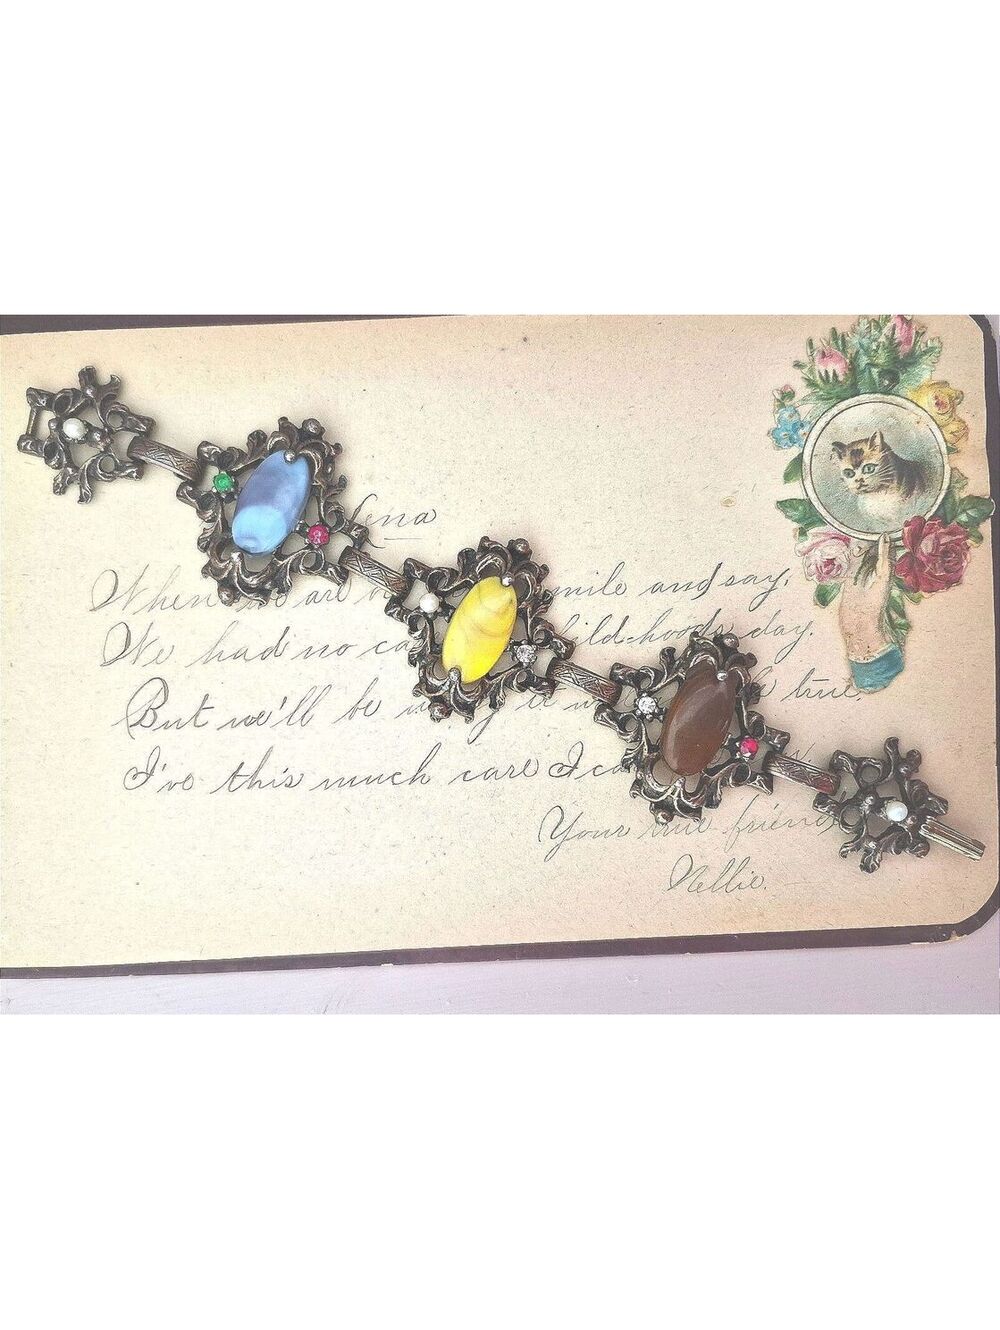 Lena
When smile and say,
We had no childhoods day.
But we'll be true
I've this much care I
Your true friend
Nellie.